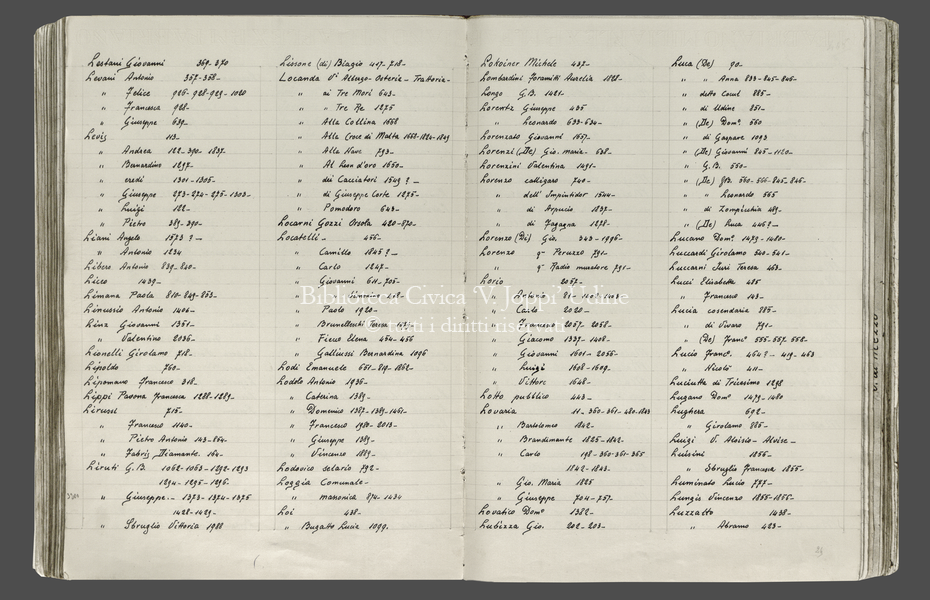 Lestani Giovanni 369-370
Levani Antonio 357-358-
" Felice 926-928-929-1020
" Francesca 928-
" Giuseppe 639-
Levis 113-
" Andrea 122-390-1837-
" Bernardino 1297-
" eredi 1301-1305-
" Giuseppe 273-274-275-1303-
" Luigi 122-
" Pietro 389-390-
Liani Angelo 1573 ? -
" Antonio 1234
Libero Antonio 839-840-
Lico 1439-
Limana Paola 810-849-853-
Linussio Antonio 1406-
Linz Giovanni 1351-
" Valentino 2036-
Lionelli Girolamo 718-
Lipoldo 760-
Lipomano Francesco 318-
Lippi Pavona Francesca 1288-1289-
Lirussi 715-
" Francesco 1140-
" Pietro Antonio 143-854-
" Fabris Diamante 164-
Liruti G.B. 1062-1063-1292-1293
1294-1295-1296-
" Giuseppe - 1373-1374-1375
1428-1429-
" Sbruglio Vittoria 1988
Lissone (di) Biagio 417-718-
Locanda Vi Albergo-Osteria-Trattoria-
" ai Tre Mori 643-
" " Tre Re 1275
" Alla Collina 1668
" Alla Croce di Malta 1668-1824-1849
" Alla Nave 793-
" Al Leon d'oro 1650-
" dei Cacciatori 1549 ? -
" di Giuseppe Corte 1275-
" Pomodoro 643-
Locarni Gozzi Orsola 420-870-
Locatelli - 456-
" Camillo 1845 ? -
" Carlo 1247-
" Giovanni 611-705-
" Paolo 1920-
" Brunelleschi
" Fieco Elena 454-456
" Galliussi Bernardina 1096
Lodi Emanuele 651-819-1862-
Lodolo Antonio 1936-
" Caterina 1389-
" Domenico 1387-1389-1461-
" Francesco 1980-2013-
" Giuseppe 1389-
" Vincenzo 1889-
Lodovico selario 792-
Loggia Comunale-
" massonica 874-1434
Loi 438-
" Bugatto Lucia 1099.
Lokoiner Michele 437-
Lombardini Foramitti Aurelia 1828-
Longo G.B. 1421-
Lorentz Giuseppe 435
" Leonardo 633-634-
Lorenzato Giovanni 1657-
Lorenzi (De) Gio. Maria- 638-
Lorenzini Valentina 1491-
Lorenzo calligaro 740-
" dell' Impintidor 1544-
" di Arpucio 1837-
" di Fagagna 1278-
Lorenzo (Di) Gio. 343-1996-
Lorenzo q.m Peruzzo 791-
" q.m Radio muratore 791-
Lorio 2057-
" Carlo 2020-
" Francesco 2057-2058-
" Giacomo 1337-1408-
" Giovanni 1601-2056-
" Luigi 1608-1609-
" Vittore 1648-
Lotto pubblico 443-
Lovaria 11-360-361-480-1843
" Bartolomeo 1842-
" Brandimante 1825-1842-
" Carlo 198-360-361-365
1842-1843-
" Gio. Maria 1825
" Giuseppe 704-757-
Lovatico Domo 1382-
Lubizza Gio. 202-203-
Luca (De) 90-
" " Anna 833-845-846-
" detto Cocul 885-
" di Udine 851-
" (De) Domo. 560
" di Gaspare 1093
" (De) Giovanni 845-1120-
" G.B. 550-
" (De) GB. 560-566-845-846-
" " Leonardo 565
" di Zompicchia 489-
" (De) Luca 446 ? -
Lucano Domo. 1479-1480-
Luccardi Girolamo 540-541-
Luccarni Turi Teresa 463-
Lucci Elisabetta 485
" Francesco 143-
Lucia cosendaria 885-
" di Vivaro 791-
" (De) Franco 555-557-558-
Lucio Franco. 464 ? - 419-463
" Nicolò 411-
Luciutta di Tricesimo 1298
Lugano Domo 1479-1480
Lughera 692-
" Girolamo 885-
Luigi V. Aloisio-Aloise-
Luisini 1855-
" Sbruglio Francesca 1855-
Luminato Lucio 777-
Lungis Vincenzo 1855-1886-
Luzzatto 1438-
" Abramo 423-
Biblioteca Civica 'V. Joppi' Udine
© tutti i diritti riservati